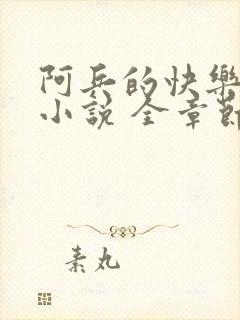 阿兵的快樂
小說 全章節
素丸